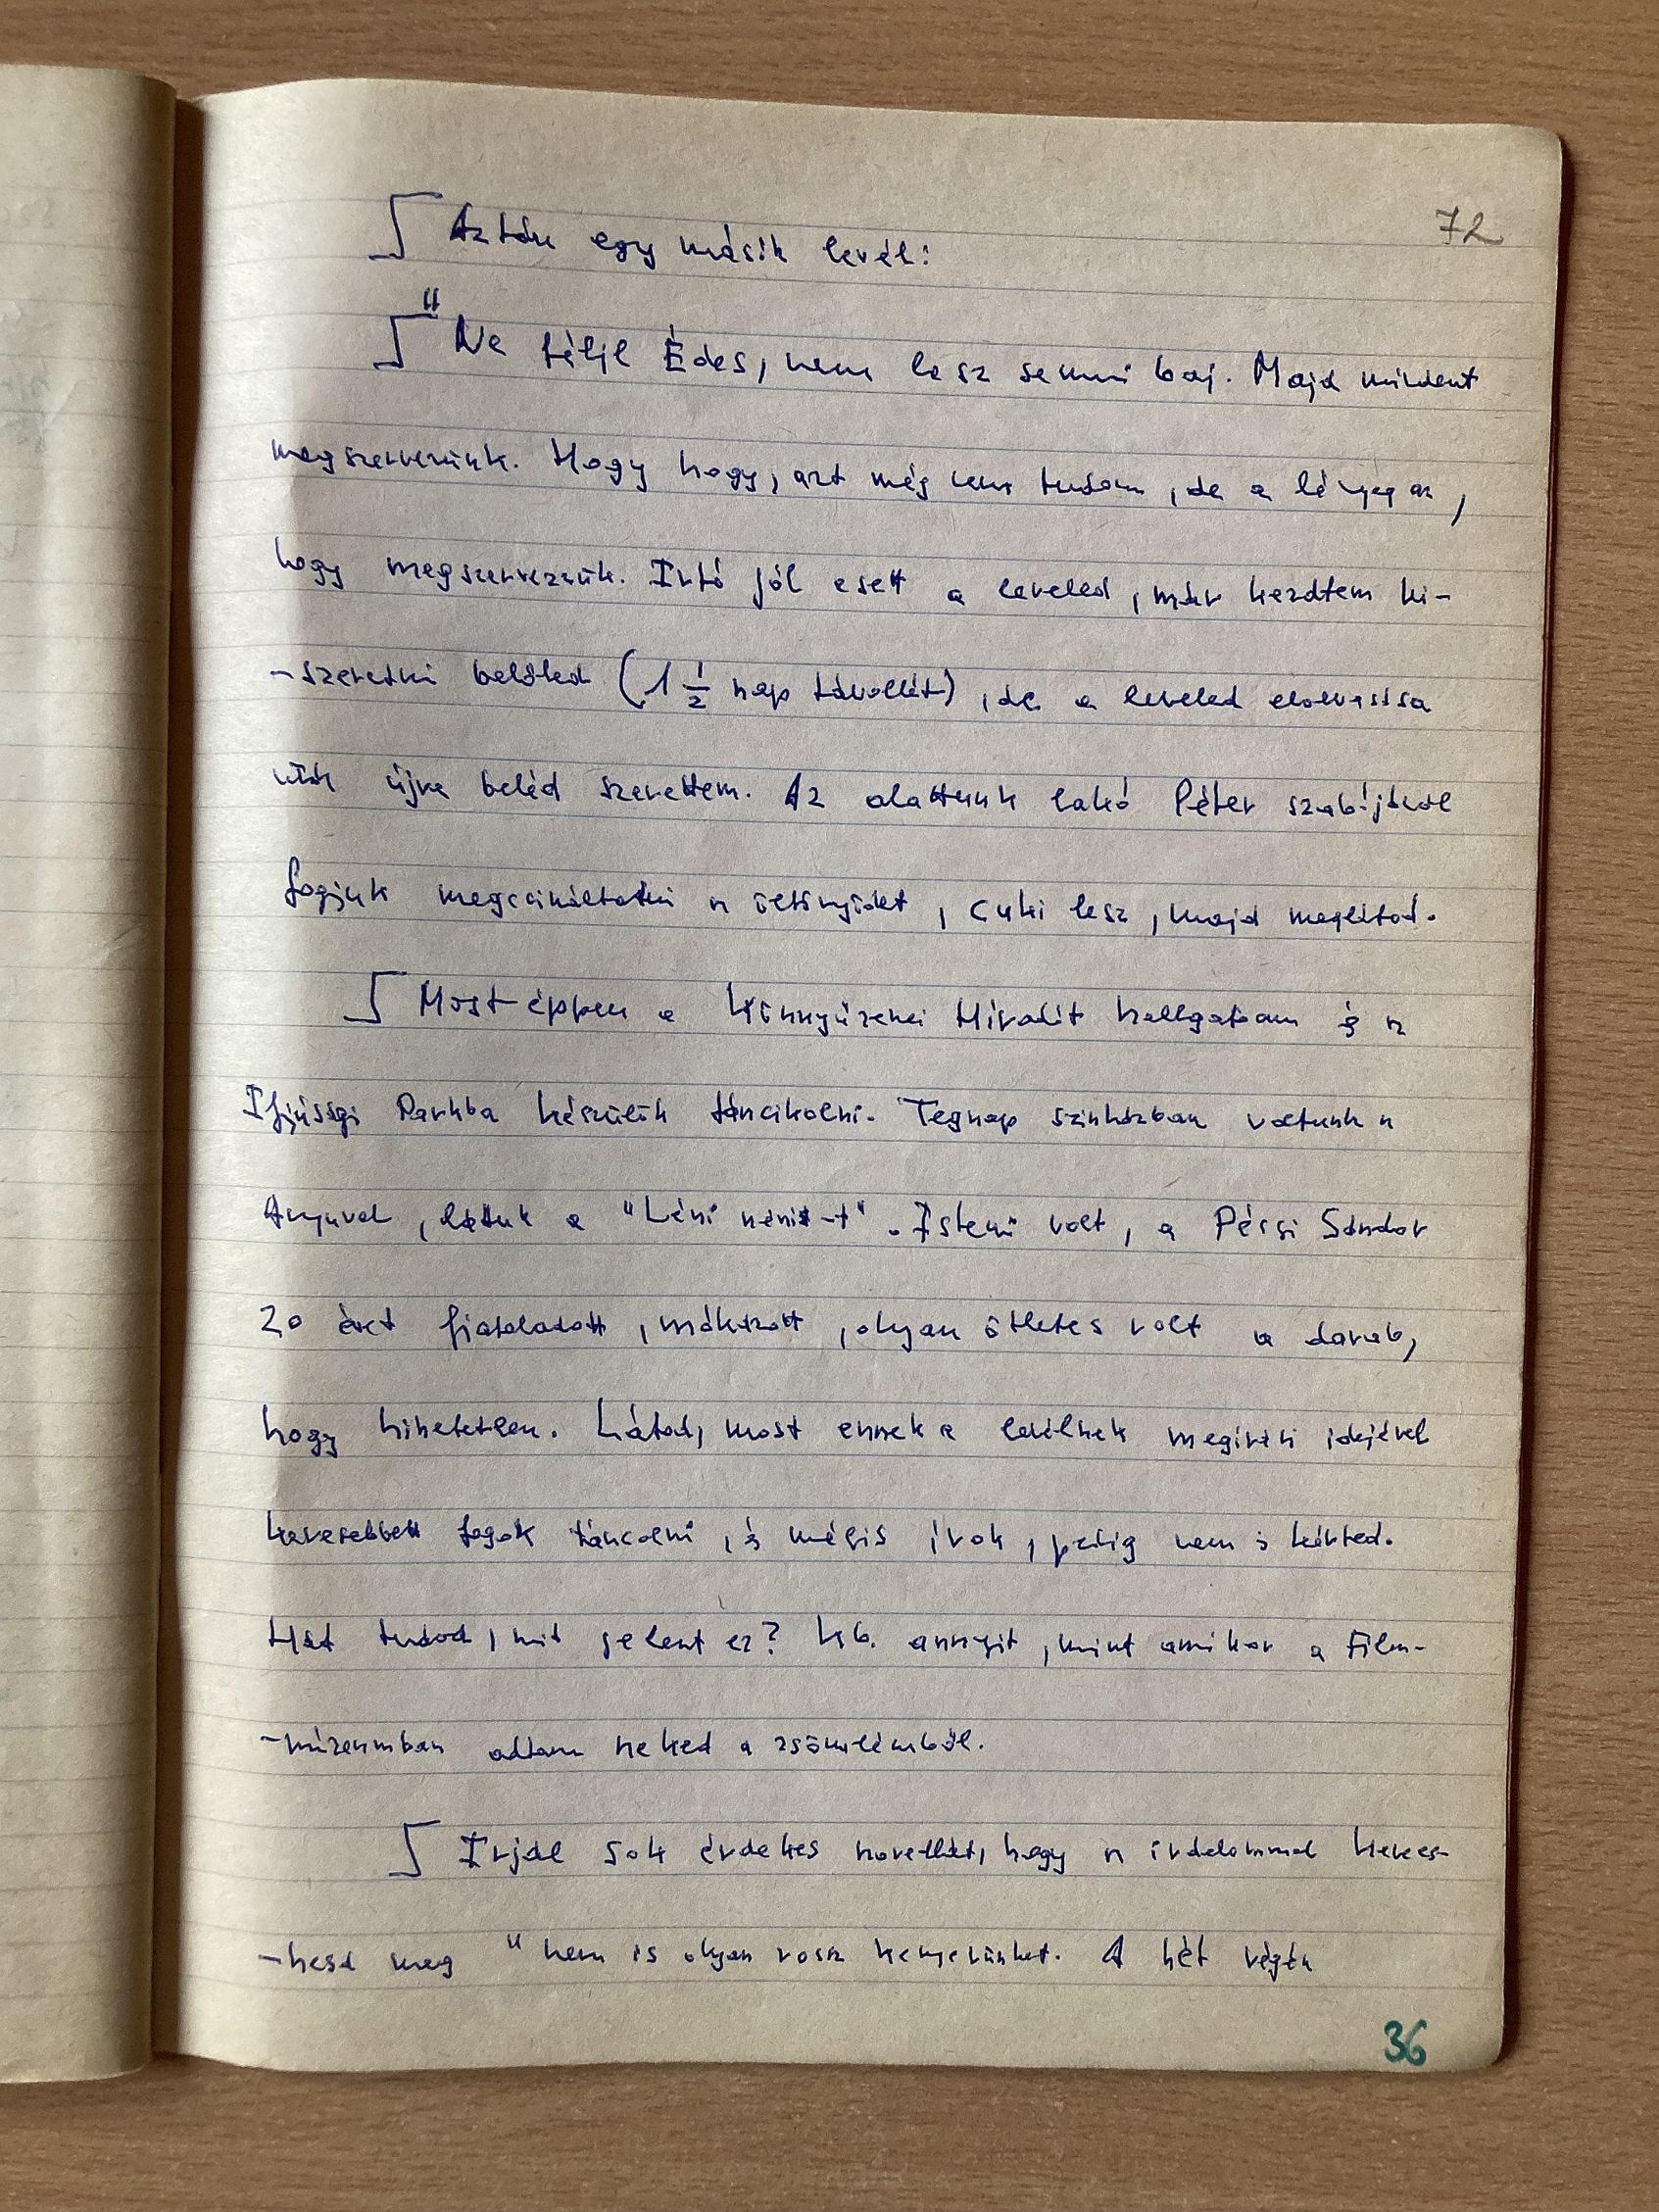 72
Aztán egy másik levél:
"Ne félj Édes, nem lesz semmi baj. Majd mindent
megszervezünk. Hogy hogy, azt még nem tudom, de a lényeg az,
hogy megszervezzük. Irtó jól esett a leveled, már kezdtem ki-
-szeretni belőled (1 1/2 nap távollét), de a leveled elolvasása
után újra beléd szerettem. Az alattunk lakó Péter szabójánál
fogjuk megcsináltatni az öltönyödet, cuki lesz, majd meglátod.
Most éppen a Könnyűzenei Híradót hallgatom és az
Ifjúsági Parkba készülök táncikolni. Tegnap szinházban voltunk az
Anyuval, láttuk a "Léni néni-t". Isteni volt, a Pécsi Sándor
20 évet fiatalodott, mókázott, olyan ötletes volt a darab,
hogy hihetetlen. Látod, most ennek a levélnek megirási idejével
kevesebbet fogok táncolni, és mégis írok, pedig nem is kérted.
Hát tudod, mit jelent ez? Kb. annyit, mint amikor a Film-
-múzeumban adtam neked a zsömlémből.
Irjál sok érdekes novellát, hogy az irodalommal keres-
-hesd meg "nem is olyan rossz kenyerünket. A hét végén
36